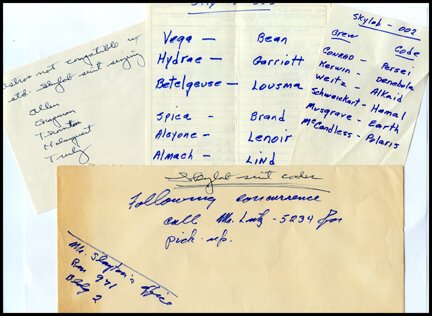 astros not compatible w/
std. Skylab suit sizing
Allen
Chapman
Thornton
Holmquest
Truly
Vega - Bean
Hydrae - Garriott
Betelgeuse - Lousma
Spica - Brand
Alcyone - Lenoir
Almach - Lind
Skylab - 002
Crew Code
CONRAD - Persei
Kerwin - Denebola
Weitz - Alkaid
Schweickart - Hamal
Musgrave - Earth
McCandless - Polaris
Skylab suit codes
Following concurrence
call Mr. Lutz - 5234 for
pick-up.
Mr. Slayton's office
Rm 941
Bldg 2